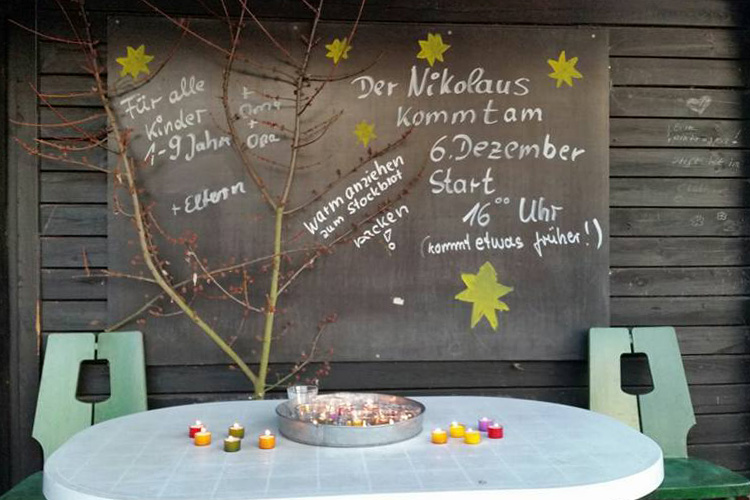 Für alle
Kinder
1-9 Jahre
+ Oma
+ Opa
+ Eltern
warm anziehen
zum Stockbrot
backen!
Der Nikolaus
kommt am
6. Dezember
Start
16⁰⁰ Uhr
(kommt etwas früher!)